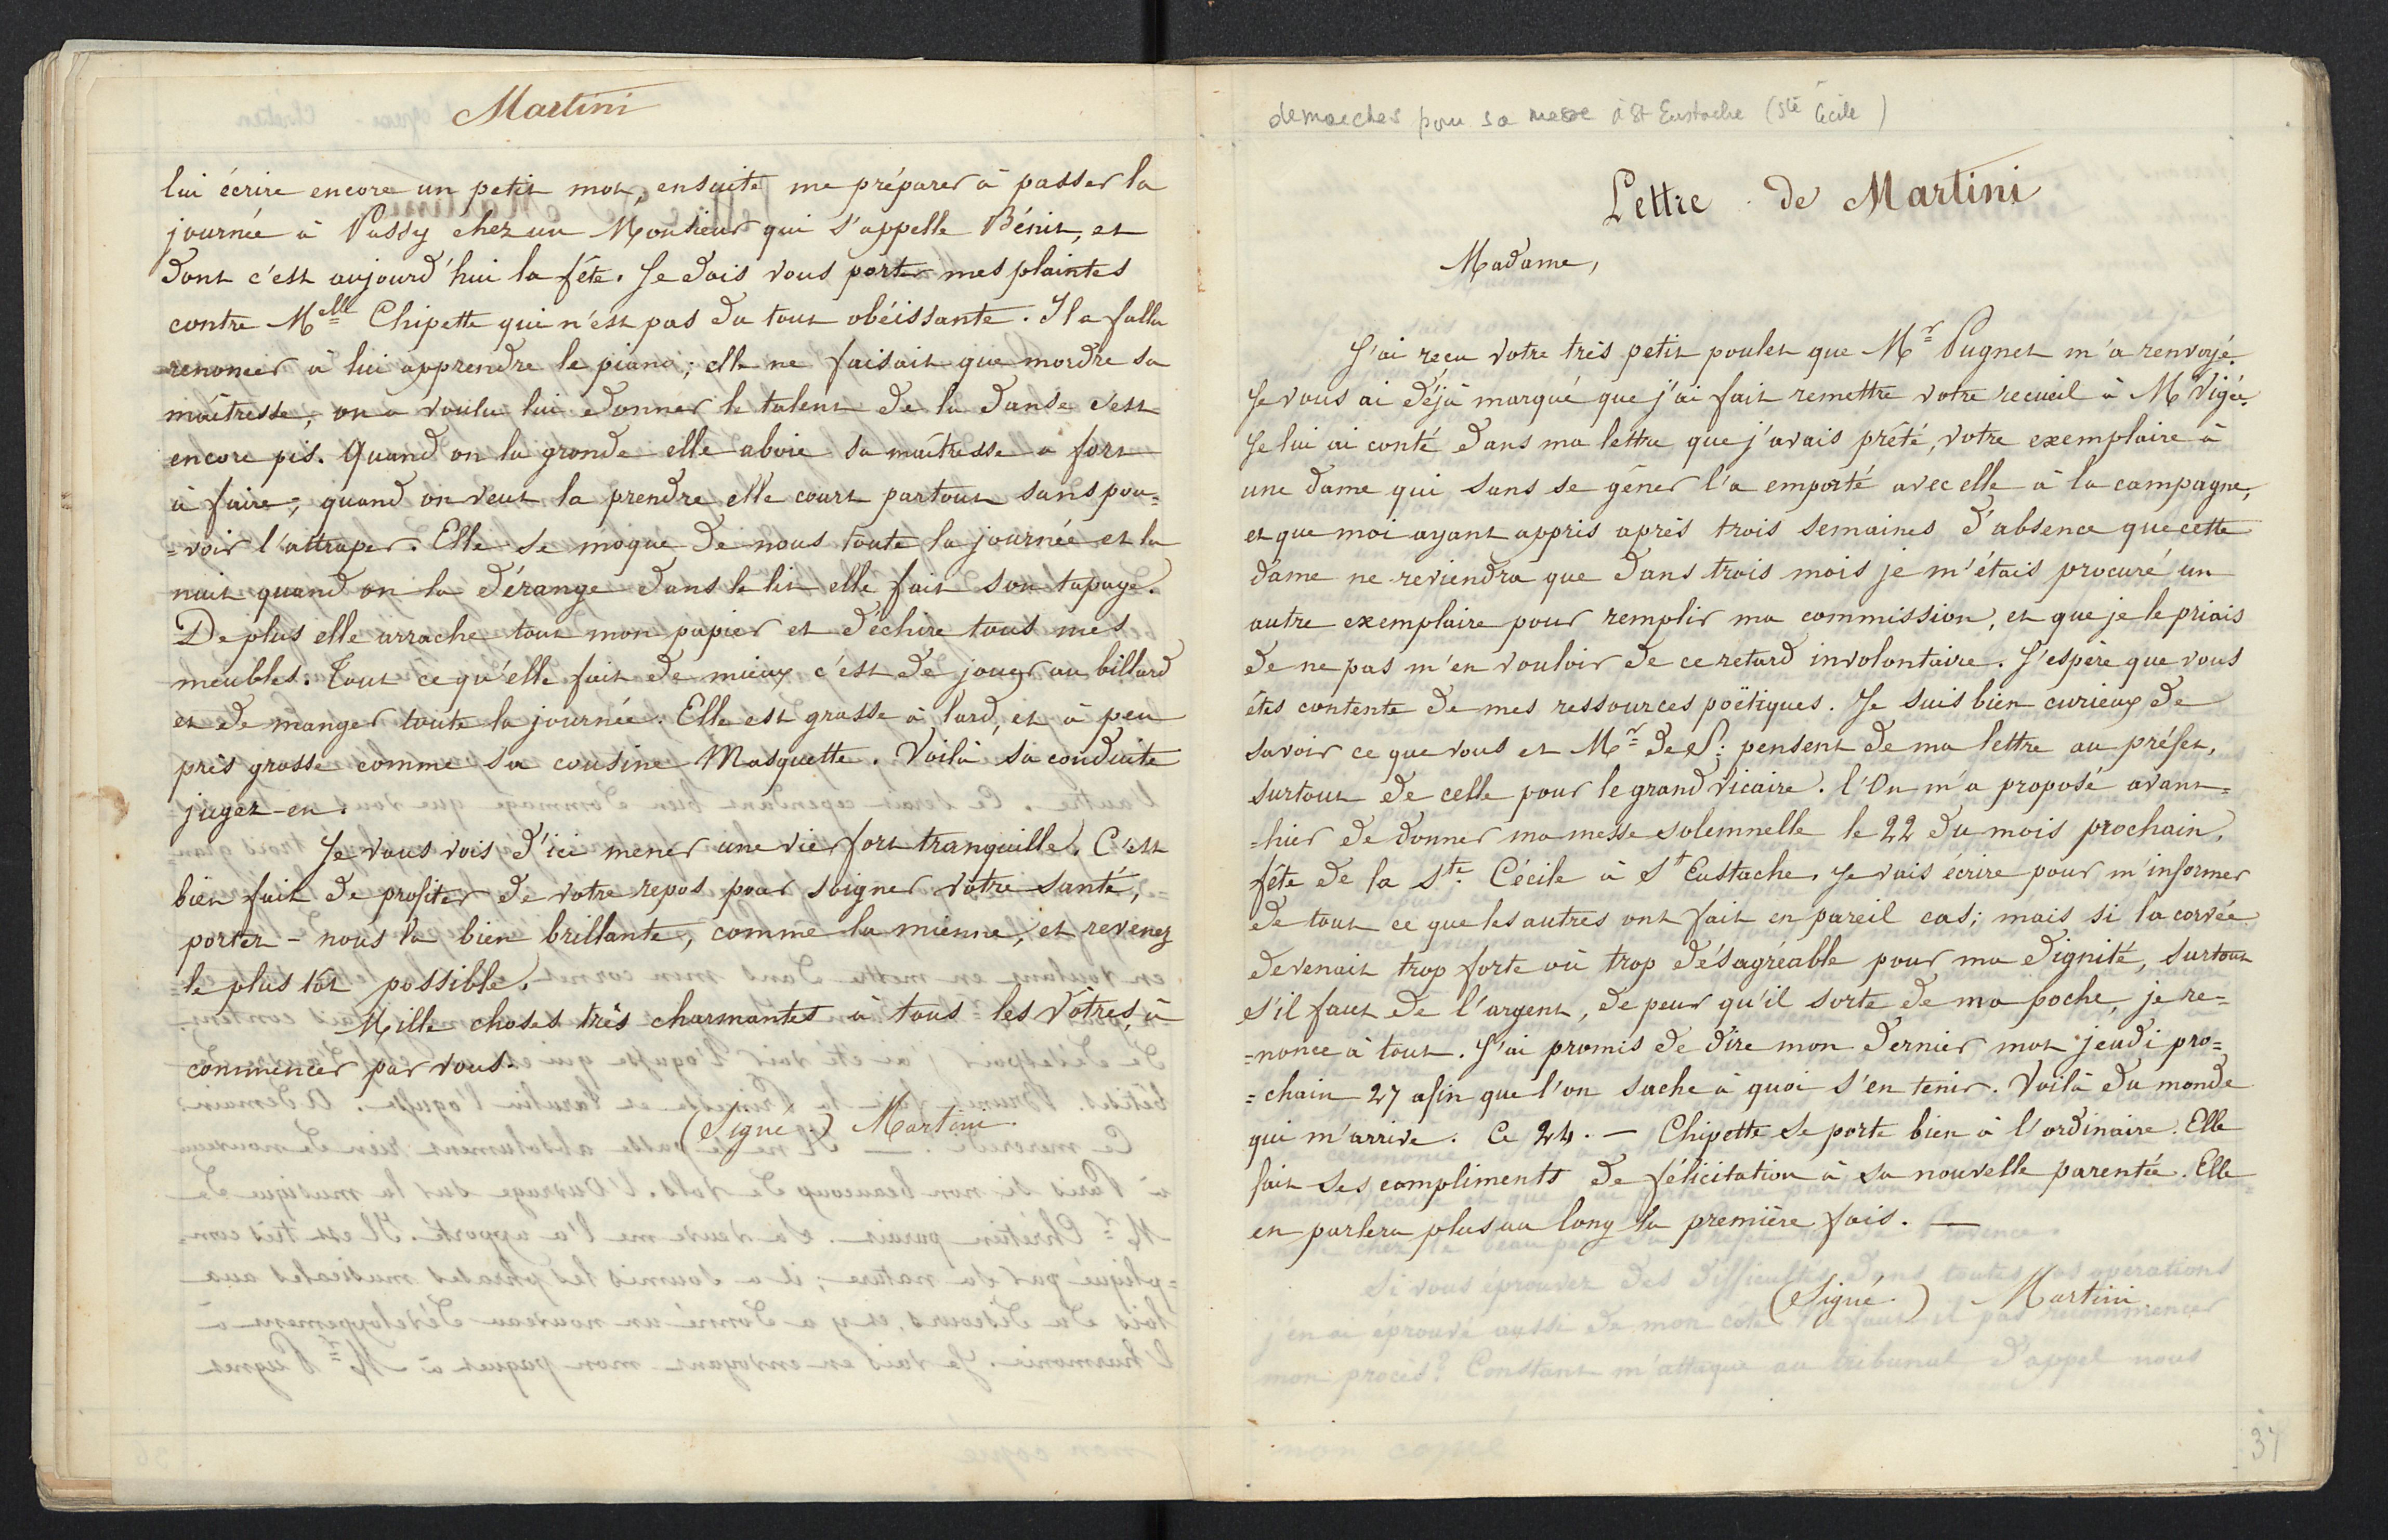 Martini
lui écrire encore un petit mot, ensuite me préparer à passer la
journée à Passy chez un Monsieur qui s'appelle Bénit, et
dont c'est aujourd'hui la fête. Je dois vous porter mes plaintes
contre M<sup>elle</sup> Chipette qui n'est pas du tout obéissante. Il a fallu
renoncer à lui apprendre le piano; elle ne faisait que mordre sa
maîtresse, on a voulu lui donner le talent de la danse c'est
encore pis. Quand on la gronde elle aboie sa maîtresse a fort
à faire; quand on veut la prendre elle court partout sans pou=
=voir l'attraper. Elle se moque de nous toute la journée et la
nuit quand on la dérange dans le lit elle fait son tapage.
De plus elle arrache tout mon papier et déchire tous mes
meubles. Tout ce qu'elle fait de mieux c'est de jouer au billard
et de manger toute la journée. Elle est grasse à lard, et à peu
près grosse comme sa cousine Masquette. Voilà sa conduite
jugez-en.
Je vous vois d'ici mener une vie fort tranquille. C'est
bien fait de profiter de votre repos pour soigner votre santé,
portez-nous la bien brillante, comme la mienne, et revenez
le plus tôt possible.
Mille choses très charmantes à tous les Vôtres, à
commencer par vous.
(Signé.) Martini.
demarches pour sa messe à St Eustache (Ste Cécile)
Lettre de Martini
Madame,
J'ai reçu votre très petit poulet que M<sup>r</sup> Pugnet m'a renvoyé.
Je vous ai déjà marqué que j'ai fait remettre votre recueil à M Vigée.
Je lui ai conté dans ma lettre que j'avais prêté, votre exemplaire à
une dame qui sans se gêner l'a emporté avec elle à la campagne,
et que moi ayant appris après trois semaines d'absence que cette
dame ne reviendra que dans trois mois je m'étais procuré un
autre exemplaire pour remplir ma commission, et que je le priais
de ne pas m'en vouloir de ce retard involontaire. J'espère que vous
êtes contente de mes ressources poëtiques. Je suis bien curieux de
savoir ce que vous et M<sup>r</sup> de S. pensent de ma lettre au préfet,
surtout de celle pour le grand vicaire. l'On m'a proposé avant=
=hier de donner ma messe solemnelle le 22 du mois prochain,
fête de la S<sup>te</sup> Cécile à S<sup>t</sup> Eustache. Je vais écrire pour m'informer
de tout ce que les autres ont fait en pareil cas; mais si la corvée
devenait trop forte où trop désagréable pour ma dignité, surtout
s'il faut de l'argent, de peur qu'il sorte de ma poche, je re=
=nonce à tout. J'ai promis de dire mon dernier mot jeudi pro=
=chain 27 afin que l'on sache à quoi s'en tenir. Voilà du monde
qui m'arrive. Ce 24. — Chipette se porte bien à l'ordinaire. Elle
fait ses compliments de félicitation à sa nouvelle parentée. Elle
en parlera plus au long la première fois. —
(Signé.) Martini.
37